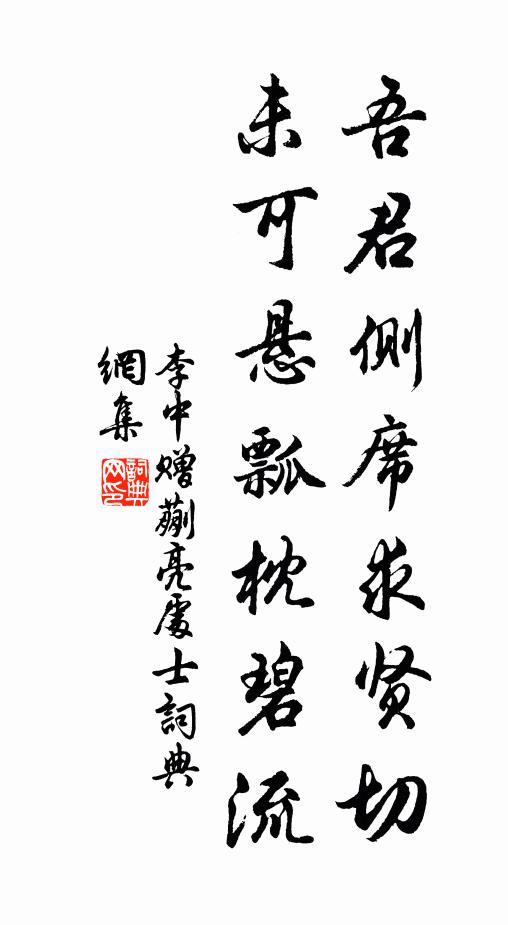 吾君侧席求贤切
未可悬瓢枕碧流
李中赠蒯亮處士詞典
網集
詞典
网印